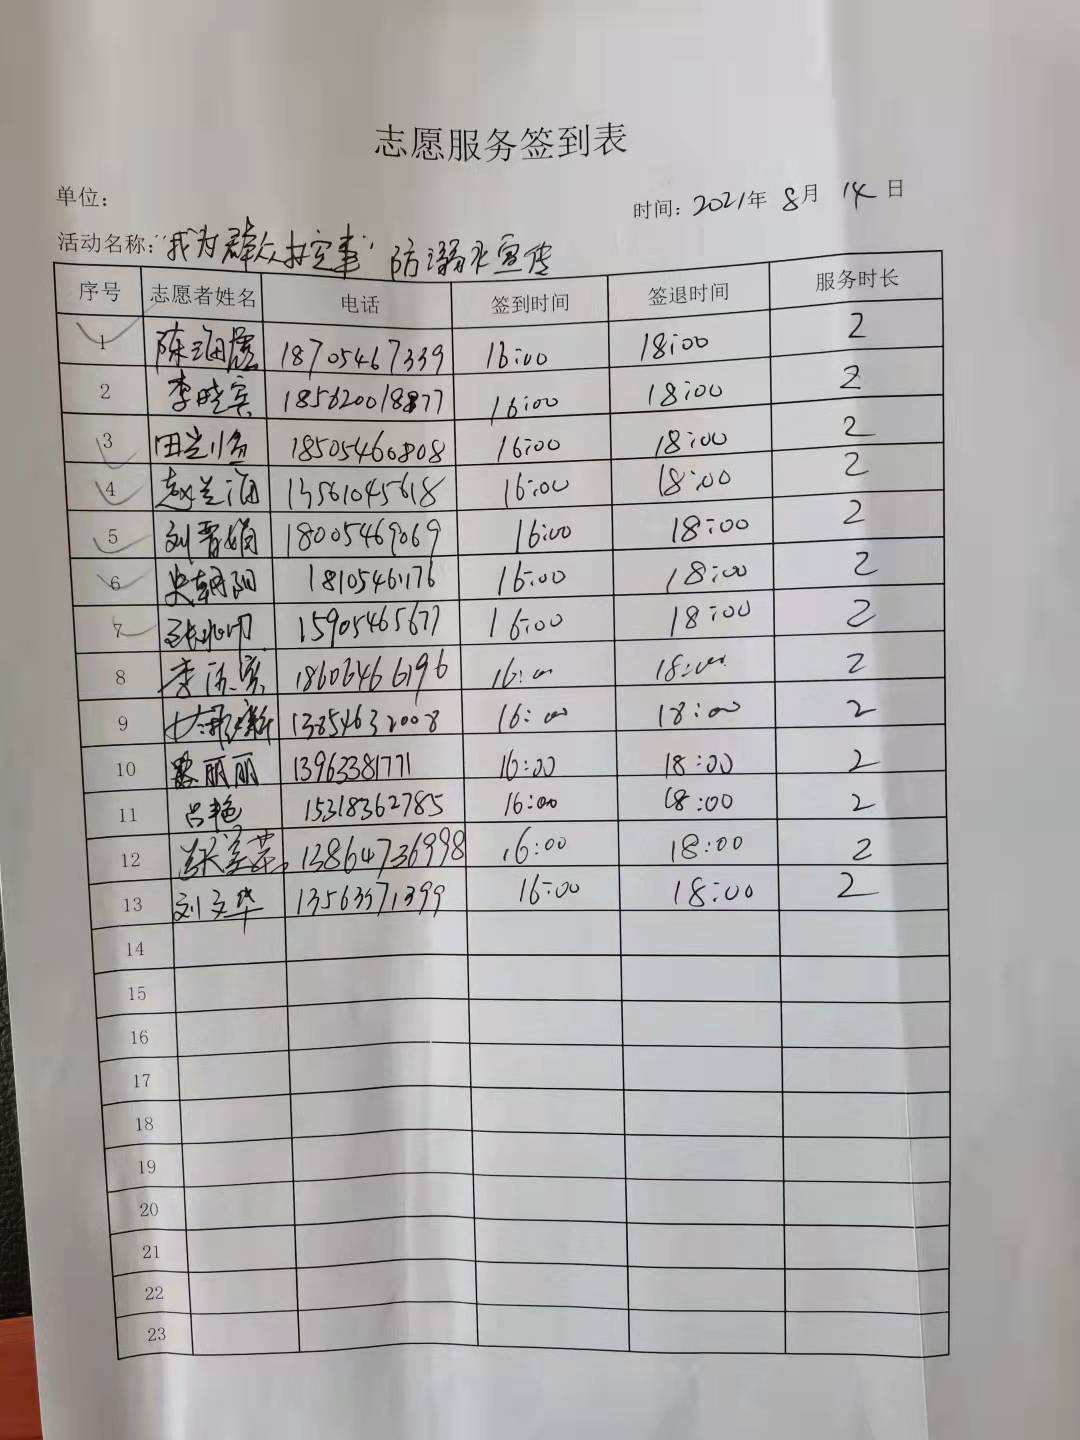 志愿服务签到表
单位：
时间：2021年 8月 14日
活动名称：“我为群众办实事” 防溺水宣传
序号 志愿者姓名 电话 签到时间 签退时间 服务时长
1 陈海霞 18705467339 16:00 18:00 2
2 李晓宾 185620018877 16:00 18:00 2
3 18505460808 16:00 18:00 2
4 赵兰海 13561045618 16:00 18:00 2
5 刘晋娟 18005469069 16:00 18:00 2
6 史朝阳 18105461176 16:00 18:00 2
7 15905465677 16:00 18:00 2
8 18606466196 16:00 18:00 2
9 13854632008 16:00 18:00 2
10 丽丽 13963381771 16:00 18:00 2
11 吕艳 15318362785 16:00 18:00 2
12 13864736998 16:00 18:00 2
13 刘文华 13563371399 16:00 18:00 2
14
15
16
17
18
19
20
21
22
23